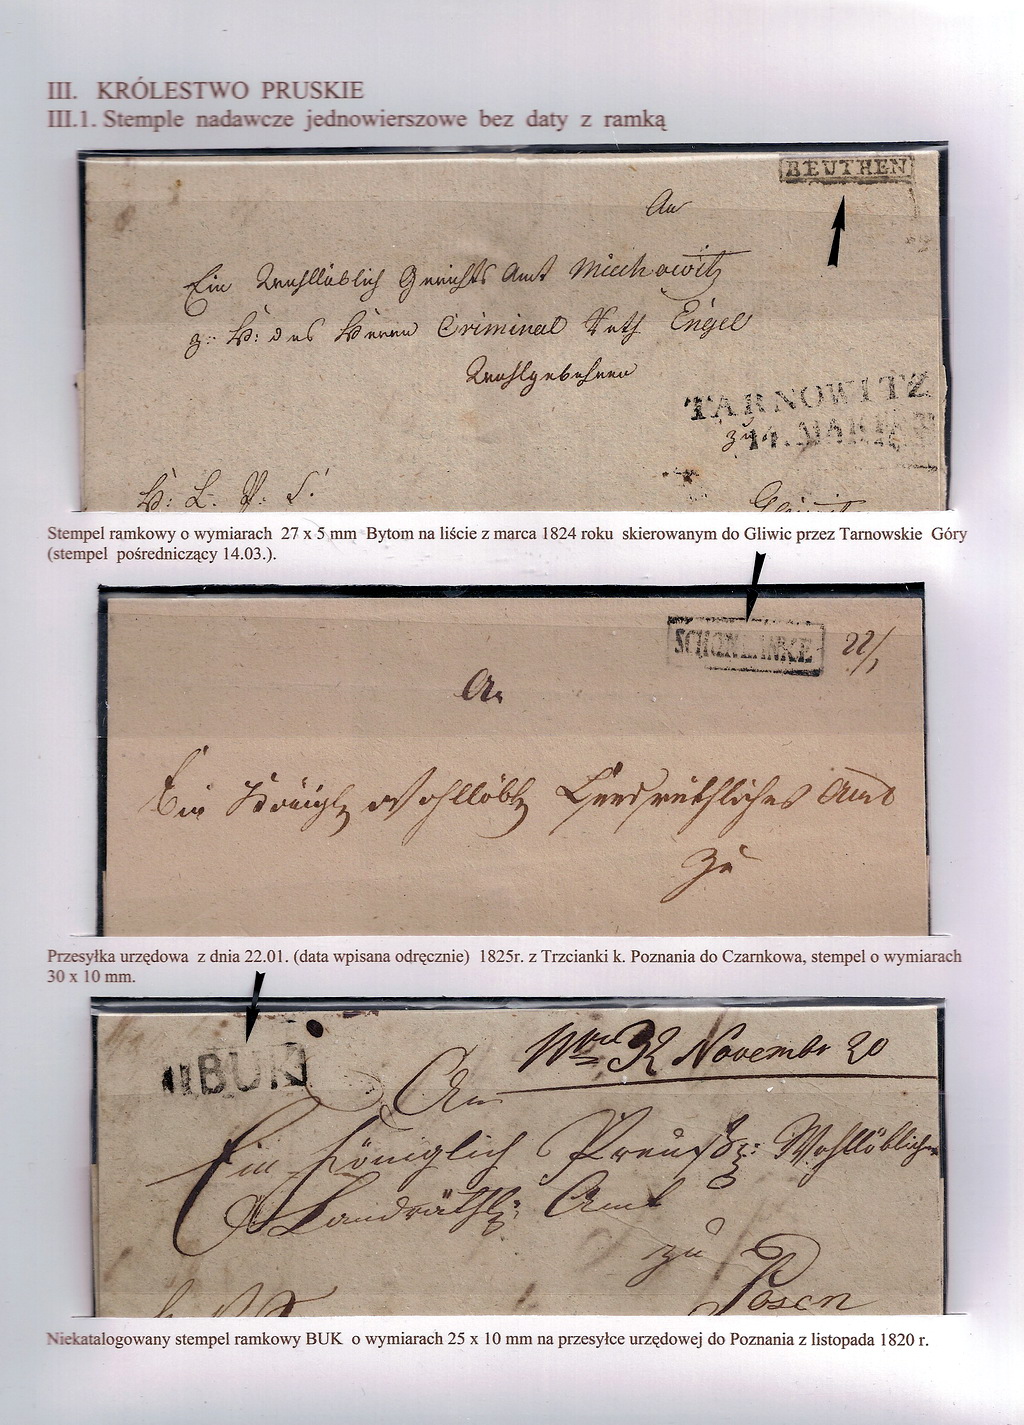 III. KRÓLESTWO PRUSKIE
III.1. Stemple nadawcze jednowierszowe bez daty z ramką
BEUTHEN
An
Ein Wohllöblich Gerichts Amt Miechowitz
z: H: des Herrn Criminal Rath Engel
Wohlgebohren
TARNOWITZ
14. MARTZ
zu
H: L. S.
Stempel ramkowy o wymiarach 27 x 5 mm Bytom na liście z marca 1824 roku skierowanym do Gliwic przez Tarnowskie Góry
(stempel pośredniczący 14.03.).
SCHÖNLANKE 22/1
An
Ein Königl Wohllöbl Landräthliches Amt
zu
Przesyłka urzędowa z dnia 22.01. (data wpisana odręcznie) 1825r. z Trzcianki k. Poznania do Czarnkowa, stempel o wymiarach
30 x 10 mm.
BUK
32 Novembr 20
An
Ein Königlich Preuß: Wohllöbliches
Landräthl: Amt
zu
Posen
Niekatalogowany stempel ramkowy BUK o wymiarach 25 x 10 mm na przesyłce urzędowej do Poznania z listopada 1820 r.